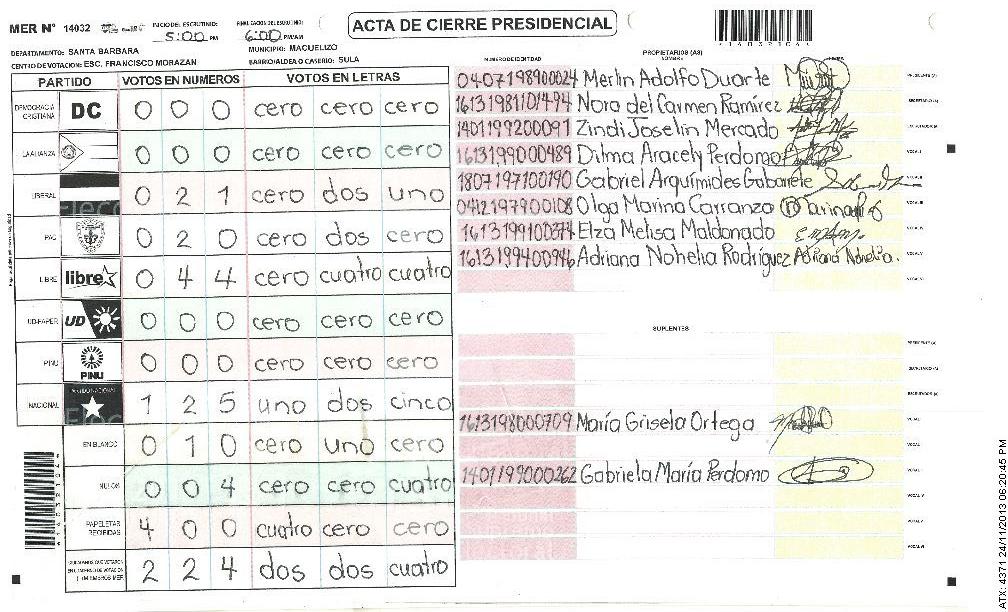 MER N° 14032 INICIO DEL ESCRUTINIO: 5:00 PM FINALIZACION DEL ESCRUTINIO: 6:00 PM/AM
ACTA DE CIERRE PRESIDENCIAL
DEPARTAMENTO: SANTA BARBARA MUNICIPIO: MACUELIZO
CENTRO DE VOTACION: ESC. FRANCISCO MORAZAN BARRIO/ALDEA O CASERIO: SULA
PARTIDO VOTOS EN NUMEROS VOTOS EN LETRAS
DEMOCRACIA CRISTIANA DC 0 0 0 cero cero cero
LA ALIANZA 0 0 0 cero cero cero
LIBERAL 0 2 1 cero dos uno
PAC 0 2 0 cero dos cero
LIBRE libre 0 4 4 cero cuatro cuatro
UD-FAPER UD 0 0 0 cero cero cero
PINU PINU 0 0 0 cero cero cero
NACIONAL 1 2 5 uno dos cinco
EN BLANCO 0 1 0 cero uno cero
NULOS 0 0 4 cero cero cuatro
PAPELETAS RECIBIDAS 4 0 0 cuatro cero cero
2 2 4 dos dos cuatro
PROPIETARIOS (AS)
NUMERO DE IDENTIDAD NOMBRE FIRMA
0407198900024 Merlin Adolfo Duarte PRESIDENTE (A)
1613198101494 Nora del Carmen Ramírez SECRETARIO (A)
1401199200091 Zindi Joselin Mercado ESCRUTADOR (A)
1613199000489 Dilma Aracely Perdomo VOCAL I
1807197100190 Gabriel Arquímides Gabarrete VOCAL II
0412197900108 Olga Marina Carranza VOCAL III
1613199100374 Elza Melisa Maldonado VOCAL IV
1613199400946 Adriana Nohelia Rodríguez Adriana Nohelia. VOCAL V
VOCAL VI
SUPLENTES
PRESIDENTE (A)
SECRETARIO (A)
ESCRUTADOR (A)
1613198000709 María Grisela Ortega VOCAL I
1401199000262 Gabriela María Perdomo
VOCAL IV
VOCAL V
VOCAL VI
ATX: 4371 24/11/2013 06:20:45 PM